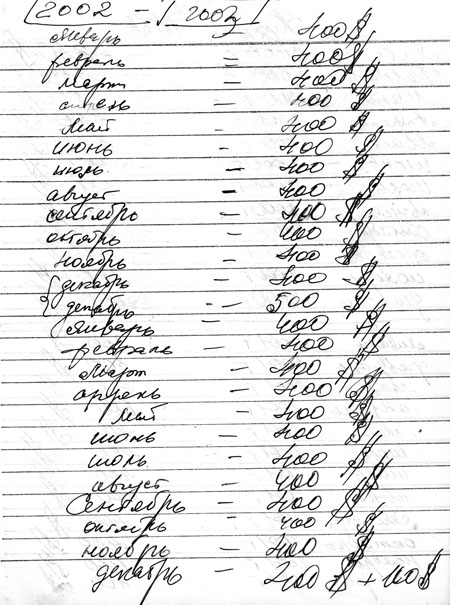 2002 - 2003
январь = 400$
февраль = 400$
март = 400 $
апрель - 400 $
Май - 400 $
июнь - 400 $
июль - 400 $
август - 400 $
сентябрь - 400 $
октябрь - 400 $
ноябрь - 400 $
декабрь - $
декабрь - 500 $
январь - 400 $
февраль - 400 $
март - 400 $
апрель - 400 $
май - 400 $
июнь - 400 $
июль - 400 $
август - 400 $
Сентябрь - 400 $
октябрь - 400 $
ноябрь - 400 $
декабрь - $ + $